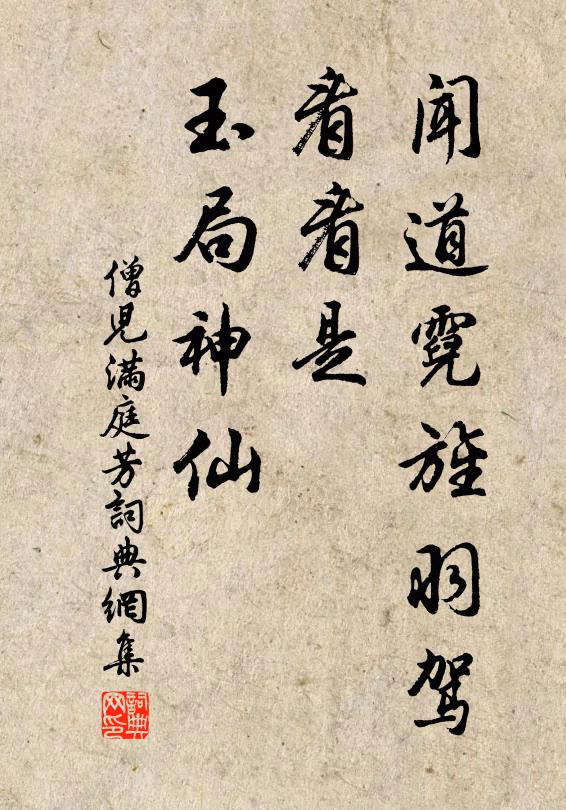 聞道霓旌羽駕
看看是
玉局神仙
僧兒滿庭芳詞典網集
詞典网印